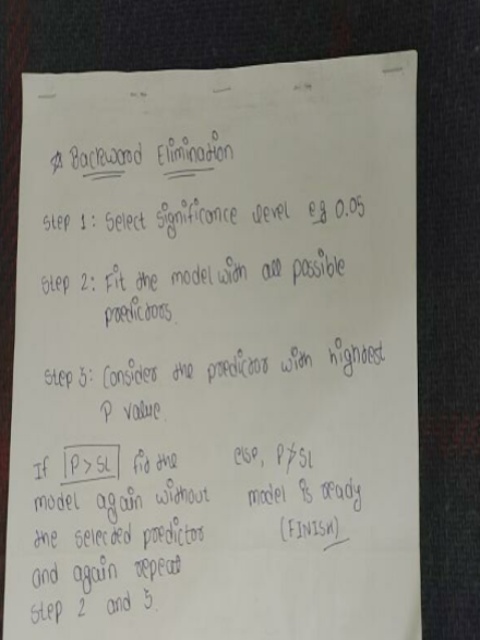 ☆ Backward Elimination
Step 1: Select significance level eg 0.05
Step 2: Fit the model with all possible
predictors.
Step 3: Consider the predictor with highest
P value.
If P > SL fit the
model again without
the selected predictor
and again repeat
Step 2 and 3.
else, P ≯ SL
model is ready
(FINISH)